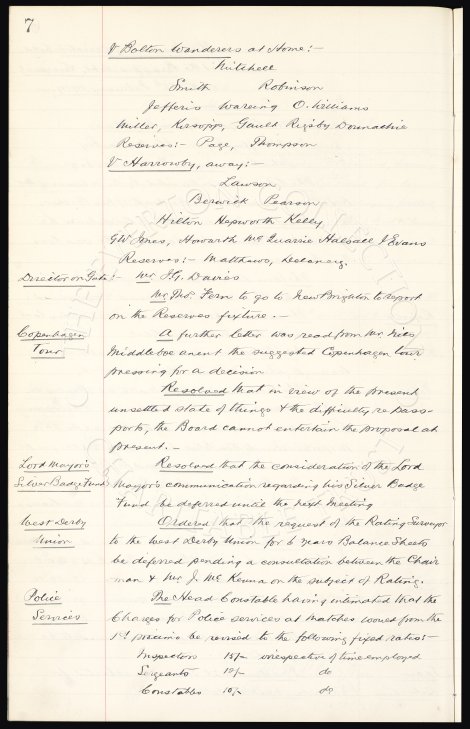 7
V Bolton Wanderers at Home:-
Mitchell
Smith Robinson
Jefferis Wareing O. Williams
Miller, Kirsopp, Gauld Rigsby Donnachie
Reserves:- Page, Thompson
V Harrowby, away:-
Lawson
Berwick Pearson
Hilton Hepworth Kelly
GW Jones, Howarth McQuarrie Halsall J Evans
Reserves:- Matthews, Delaney.
Director on Gate:- Mr H. Davies
Mr Thos. Fern to go to New Brighton to report
on the Reserves fixture.-
Copenhagen
Tour
A further letter was read from Mr.
Middleboe anent the suggested Copenhagen tour
pressing for a decision
Resolved that in view of the present
unsettled state of things & the difficulty re pass-
ports, the Board cannot entertain the proposal at
present.-
Lord Mayor's
Silver Badge Fund
Resolved that the consideration of the Lord
Mayor's communication regarding his Silver Badge
Fund be deferred until the next meeting
West Derby
Union
Ordered that the request of the Rating Surveyor
to the West Derby Union for 6 years Balance Sheets
be deferred pending a consultation between the Chair
man & Mr J. McKenna on the subject of Rating.
Police
Services
The Head Constable having intimated that the
Charges for Police services at matches would from the
1st proximo be revised to the following fixed rates:-
Inspectors 15/- irrespective of time employed
Sergeants 12/- do
Constables 10/- do